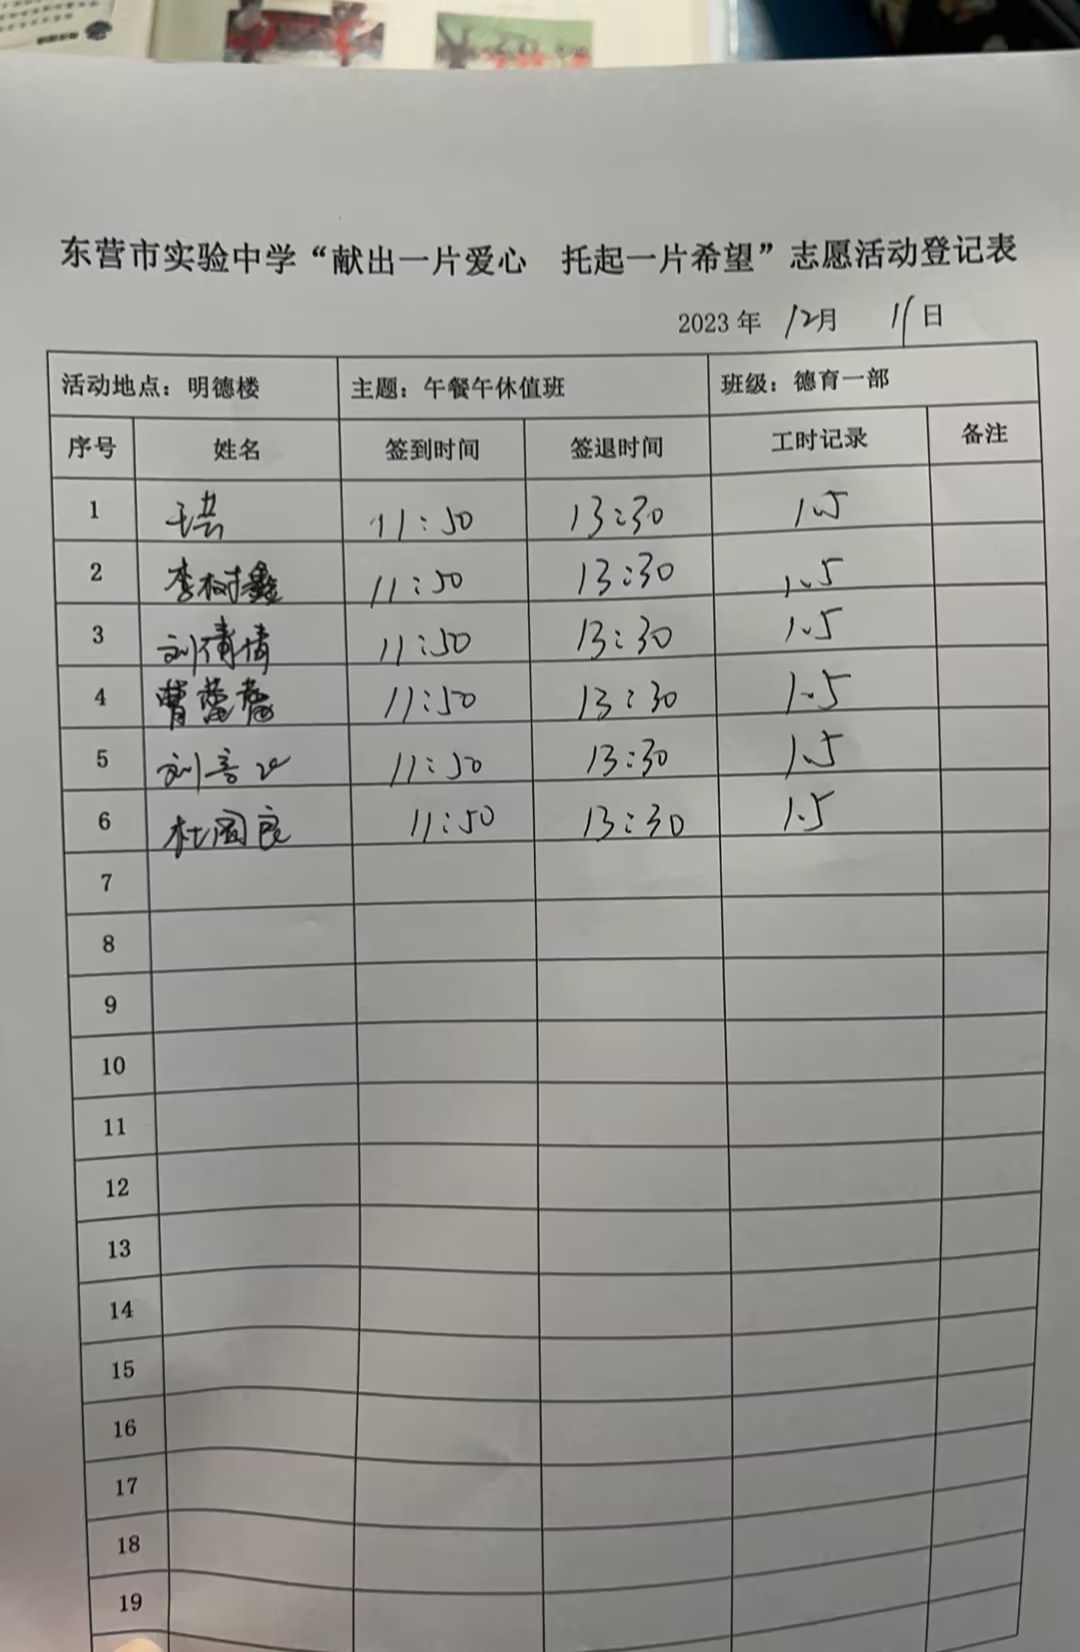 东营市实验中学“献出一片爱心 托起一片希望”志愿活动登记表
2023 年 12月 11日
活动地点：明德楼 主题：午餐午休值班 班级：德育一部
序号 姓名 签到时间 签退时间 工时记录 备注
1 11:50 13:30 1.5
2 李树鑫 11:50 13:30 1.5
3 刘倩倩 11:50 13:30 1.5
4 曹 11:50 13:30 1.5
5 刘 11:50 13:30 1.5
6 杜阁良 11:50 13:30 1.5
7
8
9
10
11
12
13
14
15
16
17
18
19